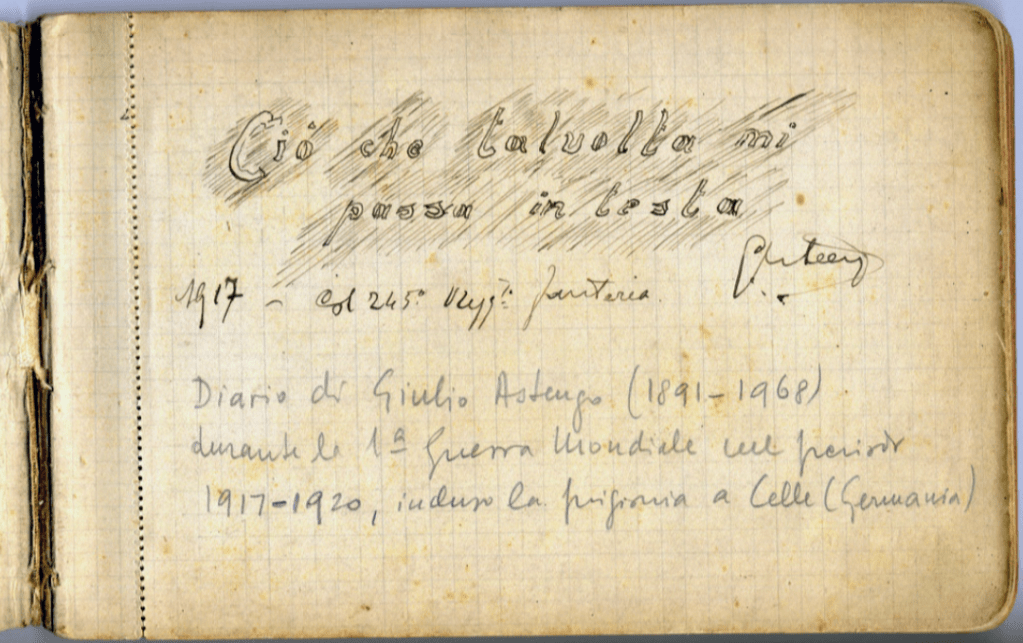 Ciò che talvolta mi
passa in testa
GAstengo
1917 - Col 245° Regg.to fanteria.
Diario di Giulio Astengo (1891-1968)
durante la 1ª Guerra Mondiale nel periodo
1917-1920, incluso la prigionia a Celle (Germania)